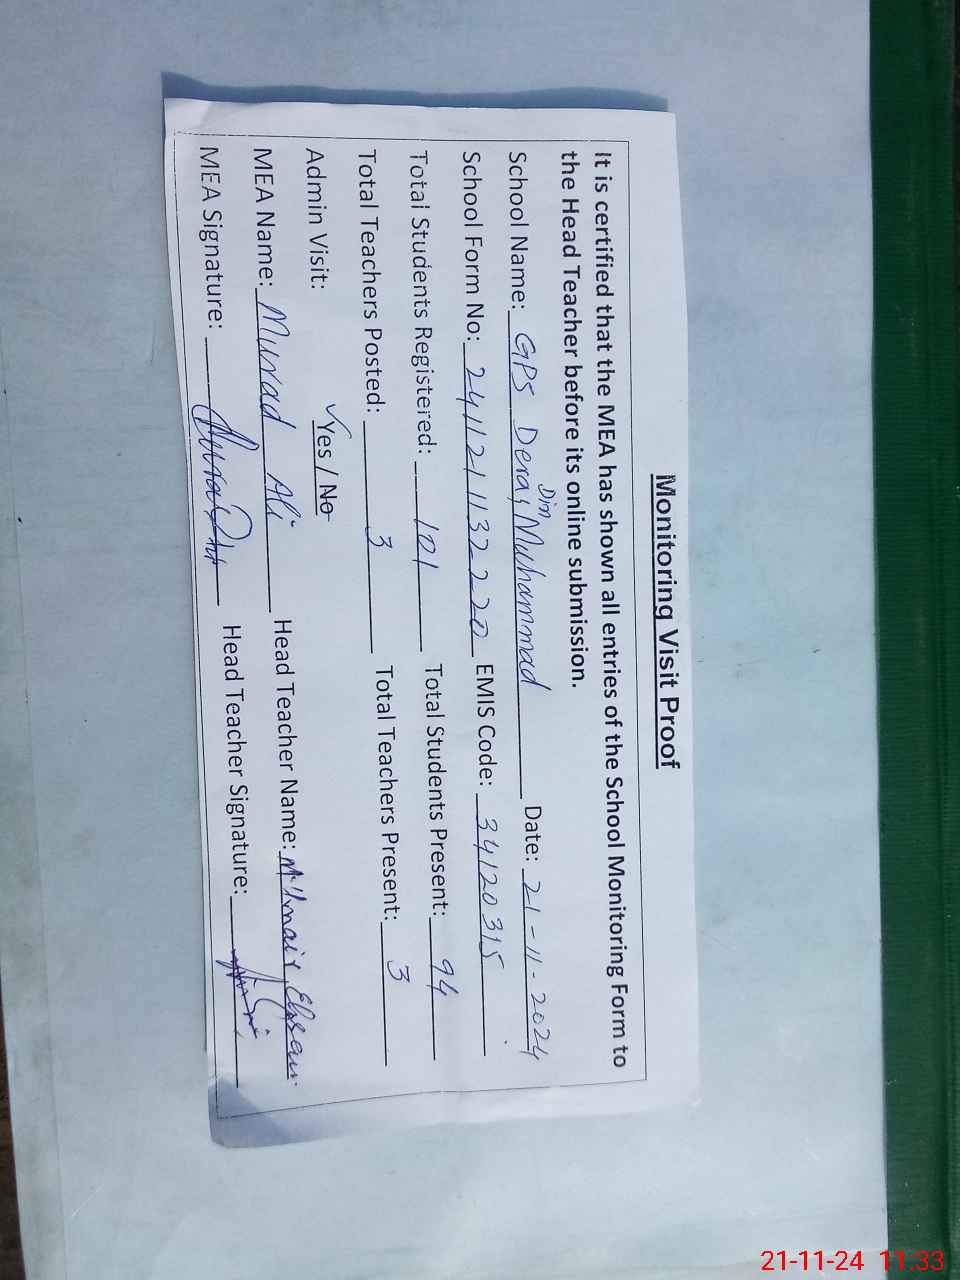 Monitoring Visit Proof
It is certified that the MEA has shown all entries of the School Monitoring Form to
the Head Teacher before its online submission.
School Name: GPS Dera Din Muhammad Date: 21-11-2024
School Form No: 241121132220 EMIS Code: 34120315
Total Students Registered: 101 Total Students Present: 94
Total Teachers Posted: 3 Total Teachers Present: 3
Admin Visit: ✓Yes / No
MEA Name: Murad Ali Head Teacher Name: M.
MEA Signature: Head Teacher Signature:
21-11-24 11:33